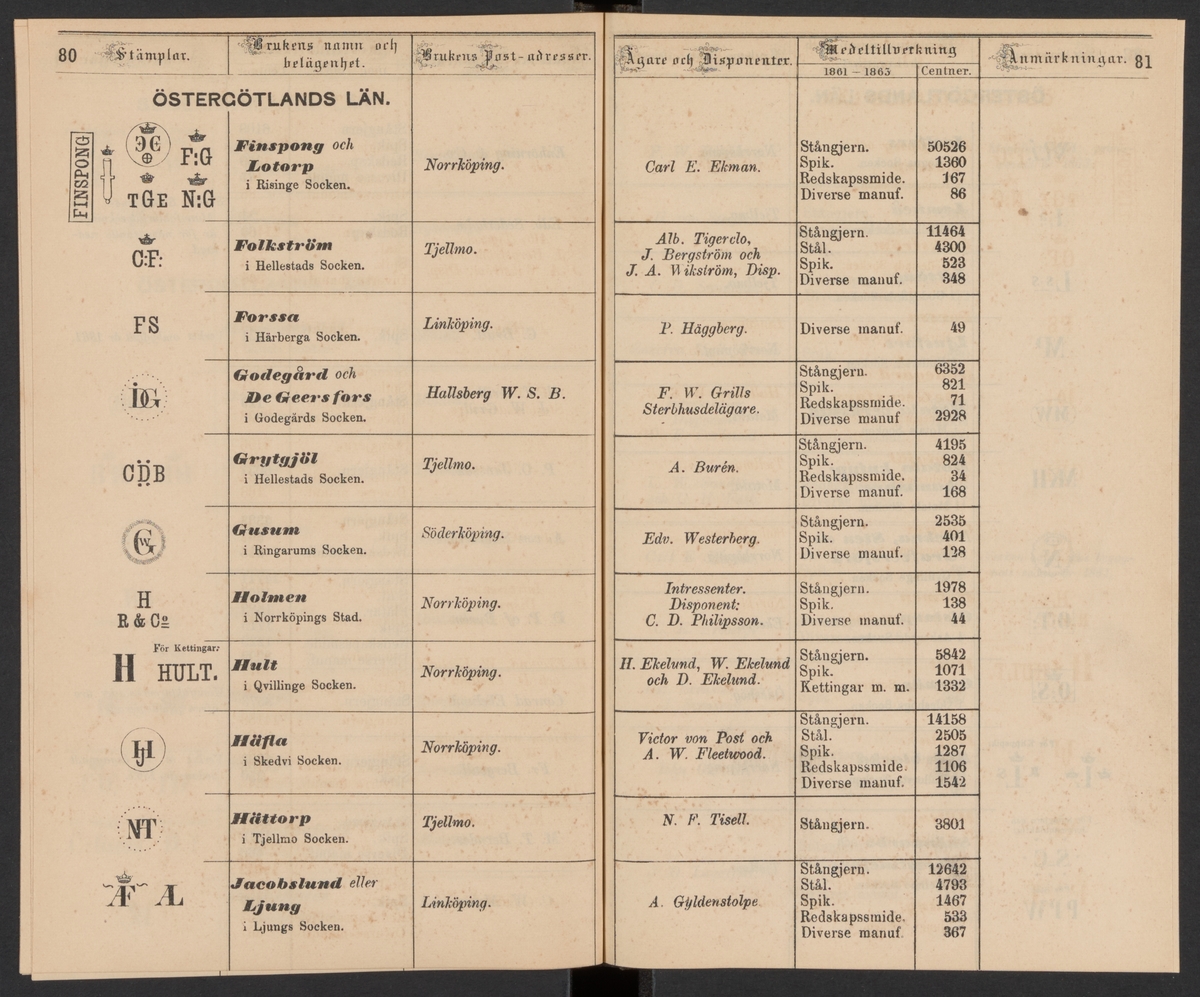 80 Stämplar. Brukens namn och belägenhet. Brukens Post-adresser. Ägare och Disponenter. Medeltillverkning 1861 – 1863 Centner. Anmärkningar. 81
ÖSTERGÖTLANDS LÄN.
FINSPONG F:G TGE N:G
Finspong och
Lotorp
i Risinge Socken.
Norrköping.
Carl E. Ekman.
Stångjern. 50526
Spik. 1360
Redskapssmide. 167
Diverse manuf. 86
C:F:
Folkström
i Hellestads Socken.
Tjellmo.
Alb. Tigerclo,
J. Bergström och
J. A. Wikström, Disp.
Stångjern. 11464
Stål. 4300
Spik. 523
Diverse manuf. 348
FS
Forssa
i Härberga Socken.
Linköping.
P. Häggberg.
Diverse manuf. 49
DG
Godegård och
De Geersfors
i Godegärds Socken.
Hallsberg W. S. B.
F. W. Grills
Sterbhusdelägare.
Stångjern. 6352
Spik. 821
Redskapssmide. 71
Diverse manuf 2928
CDB
Grytgjöl
i Hellestads Socken.
Tjellmo.
A. Burén.
Stångjern. 4195
Spik. 824
Redskapssmide. 34
Diverse manuf. 168
GW
Gusum
i Ringarums Socken.
Söderköping.
Edv. Westerberg.
Stångjern. 2535
Spik. 401
Diverse manuf. 128
H
R & Co
Holmen
i Norrköpings Stad.
Norrköping.
Intressenter.
Disponent:
C. D. Philipsson.
Stångjern. 1978
Spik. 138
Diverse manuf. 44
För Kettingar:
H HULT.
Hult
i Qvillinge Socken.
Norrköping.
H. Ekelund, W. Ekelund
och D. Ekelund.
Stångjern. 5842
Spik. 1071
Kettingar m. m. 1332
Häfla
i Skedvi Socken.
Norrköping.
Victor von Post och
A. W. Fleetwood.
Stångjern. 14158
Stål. 2505
Spik. 1287
Redskapssmide. 1106
Diverse manuf. 1542
NT
Hättorp
i Tjellmo Socken.
Tjellmo.
N. F. Tisell.
Stångjern. 3801
ÆF AL
Jacobslund eller
Ljung
i Ljungs Socken.
Linköping.
A. Gyldenstolpe
Stångjern. 12642
Stål. 4793
Spik. 1467
Redskapssmide. 533
Diverse manuf. 367